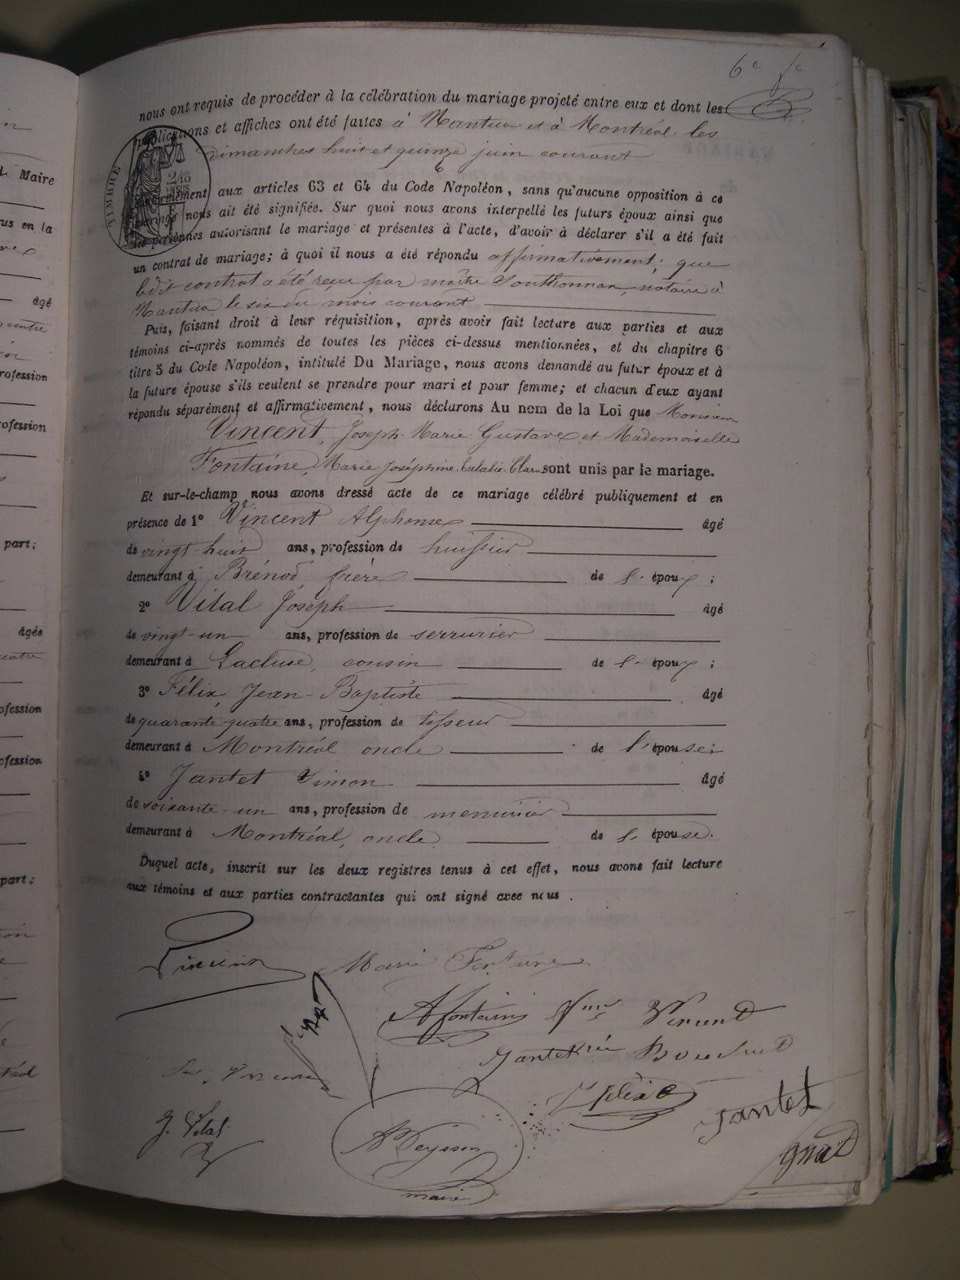 6e fe
nous ont requis de procéder à la célébration du mariage projeté entre eux et dont les
publications et affiches ont été faites à Nantua et à Montréal les
dimanches huit et quinze juin courant
TIMBRE
conformément aux articles 63 et 64 du Code Napoléon, sans qu'aucune opposition à ce
mariage nous ait été signifiée. Sur quoi nous avons interpellé les futurs époux ainsi que
les personnes autorisant le mariage et présentes à l'acte, d'avoir à déclarer s'il a été fait
un contrat de mariage; à quoi il nous a été répondu affirmativement; que
ledit contrat a été reçu par maître Southonnax, notaire à
Nantua le six du mois courant
Puis, faisant droit à leur réquisition, après avoir fait lecture aux parties et aux
témoins ci-après nommés de toutes les pièces ci-dessus mentionnées, et du chapitre 6
titre 5 du Code Napoléon, intitulé Du Mariage, nous avons demandé au futur époux et à
la future épouse s'ils veulent se prendre pour mari et pour femme; et chacun d'eux ayant
répondu séparément et affirmativement, nous déclarons Au nom de la Loi que Monsieur
Vincent, Joseph Marie Gustave et Mademoiselle
Fontaine, Marie Joséphine Eulalie Clar sont unis par le mariage.
Et sur-le-champ nous avons dressé acte de ce mariage célébré publiquement et en
présence de 1o Vincent Alphonse âgé
de vingt-huit ans, profession de huissier
demeurant à Brénod frère de l'époux;
2o Vital Joseph âgé
de vingt-un ans, profession de serrurier
demeurant à Lacluse, cousin de l'époux;
3o Félix, Jean-Baptiste âgé
de quarante quatre ans, profession de tisseur
demeurant à Montréal oncle de l'épouse;
4o Jantet Simon âgé
de soixante-un ans, profession de menuisier
demeurant à Montréal, oncle de l'épouse.
Duquel acte, inscrit sur les deux registres tenus à cet effet, nous avons fait lecture
aux témoins et aux parties contractantes qui ont signé avec nous.
Vincent Marie Fontaine
A fontaine Vve Vincent
Jantet née Bouchut
Vincent
Félix
J. Vital
Jantet
maire